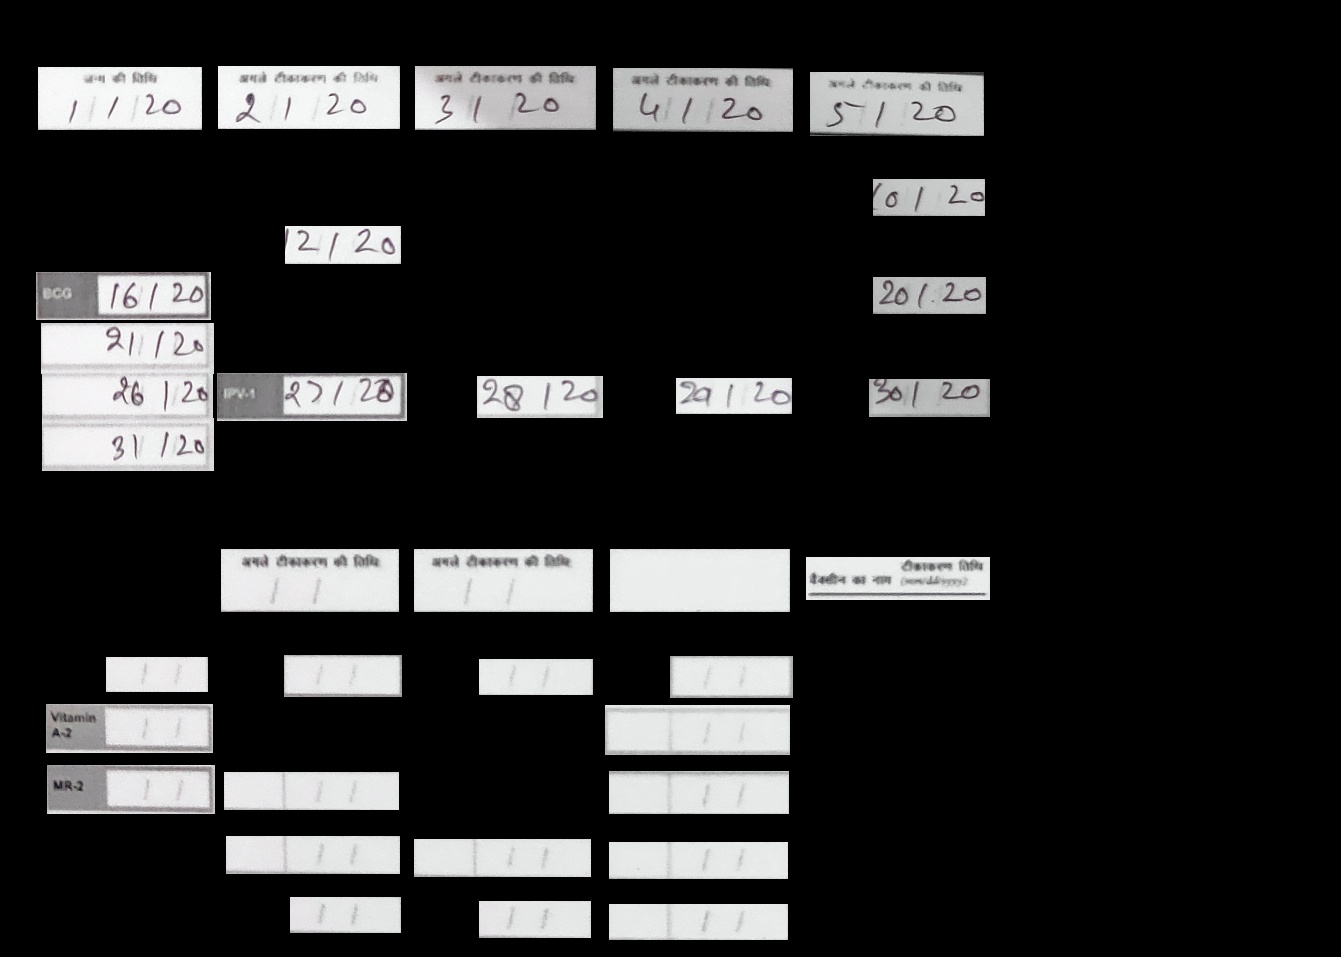 जन्म की तिथि
1/1/20
अगले टीकाकरण की तिथि
2/1/20
अगले टीकाकरण की तिथि
3/1/20
अगले टीकाकरण की तिथि
4/1/20
अगले टीकाकरण की तिथि
5/1/20
10/1/20
12/1/20
BCG 16/1/20
20/1/20
21/1/20
26/1/20
IPV-1 27/1/20
28/1/20
29/1/20
30/1/20
31/1/20
अगले टीकाकरण की तिथि
/ /
अगले टीकाकरण की तिथि
/ /
टीकाकरण तिथि
वैक्सीन का नाम (mm/dd/yyyy)
/ /
/ /
/ /
/ /
Vitamin A-2 / /
/ /
MR-2 / /
/ /
/ /
/ /
/ /
/ /
/ /
/ /
/ /